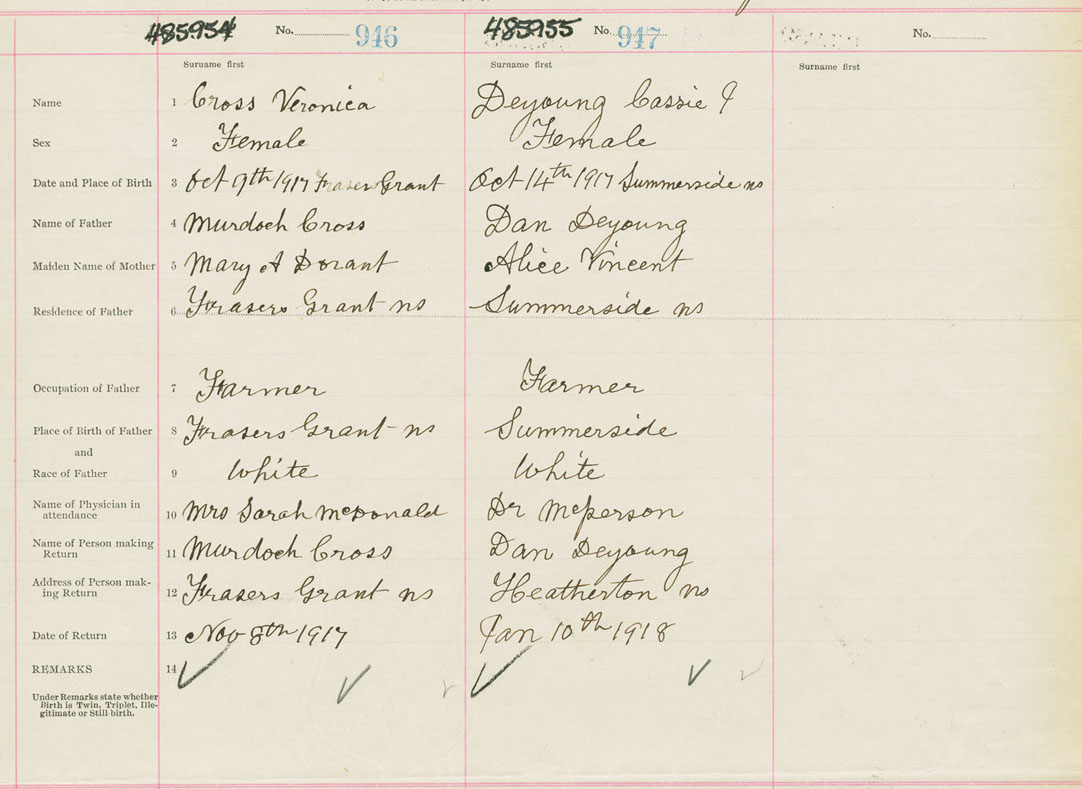 485954 No. 946 485955 No. 947 No.
Surname first Surname first Surname first
Name 1 Cross Veronica Deyoung Cassie J
Sex 2 Female Female
Date and Place of Birth 3 Oct 9th 1917 Frasers Grant Oct 14th 1917 Summerside ns
Name of Father 4 Murdoch Cross Dan Deyoung
Maiden Name of Mother 5 Mary A Dorant Alice Vincent
Residence of Father 6 Frasers Grant ns Summerside ns
Occupation of Father 7 Farmer Farmer
Place of Birth of Father 8 Frasers Grant ns Summerside
and
Race of Father 9 White White
Name of Physician in
attendance 10 Mrs Sarah McDonald Dr Mcperson
Name of Person making
Return 11 Murdoch Cross Dan Deyoung
Address of Person mak-
ing Return 12 Frasers Grant ns Heatherton ns
Date of Return 13 Nov 8th 1917 Jan 10th 1918
REMARKS 14
Under Remarks state whether
Birth is Twin, Triplet, Ille-
gitimate or Still-birth.